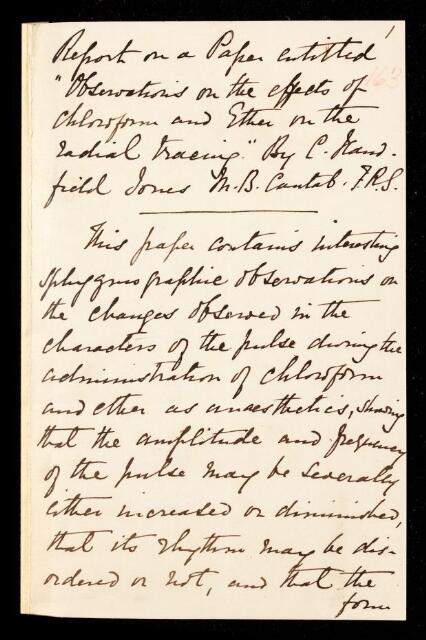 1
163
Report on a Paper entitled
"Observations on the effects of
Chloroform and Ether on the
radial tracing." By C. Hand-
field Jones M.B. Cantab. F.R.S.
This paper contains interesting
sphygmographic observations on
the changes observed in the
characters of the pulse during the
administration of chloroform
and ether as anaesthetics, showing
that the amplitude and frequency
of the pulse may be severally
either increased or diminished,
that its rhythm may be dis-
ordered or not, and that the
form